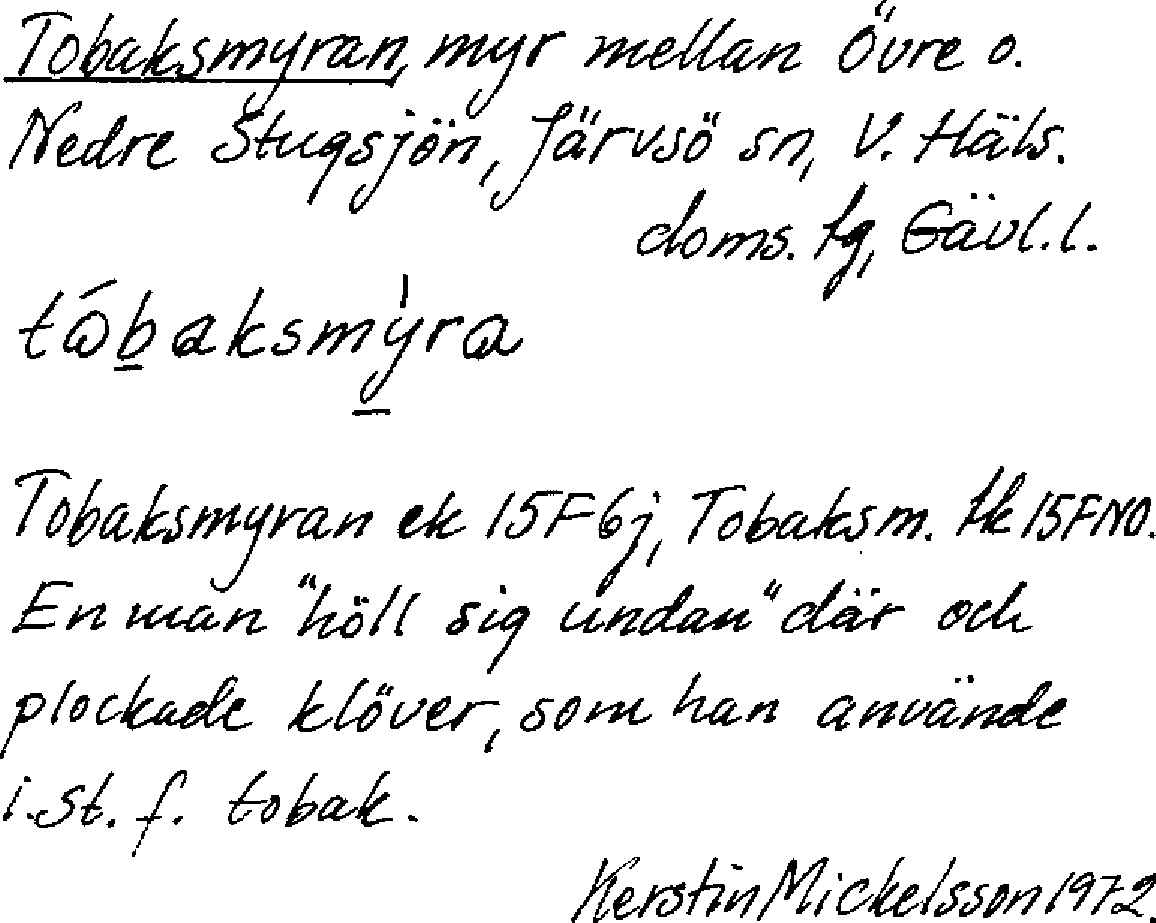 Tobaksmyran, myr mellan Övre o.
Nedre Stugsjön, Järvsö sn, V. Häls.
doms. tg, Gävl.l.
tǻbaksmỳra
Tobaksmyran ek 15F6j, Tobaksm. tk 15FNO.
En man "höll sig undan" där och
plockade klöver, som han använde
i.st. f. tobak.
Kerstin Mickelsson 1972.